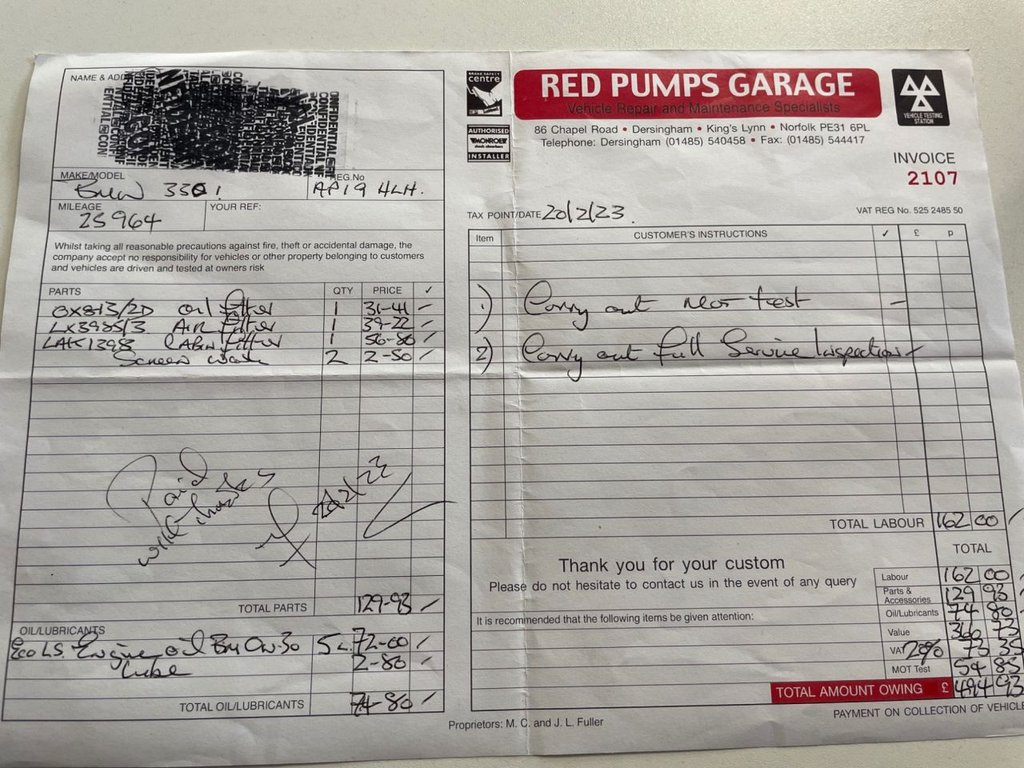 NAME & ADD
MAKE/MODEL
BMW 330i
REG.No
AP19 4LH.
MILEAGE
25964
YOUR REF:
Whilst taking all reasonable precautions against fire, theft or accidental damage, the
company accept no responsibility for vehicles or other property belonging to customers
and vehicles are driven and tested at owners risk
PARTS QTY PRICE ✓
OX813/2D Oil filter 1 31-41
LX3985/3 Air filter 1 39-22
LAK1398 Cabin filter 1 56-80
Screen wash 2 2-50
Paid
with thanks
20/2/23
TOTAL PARTS 129-93
OIL/LUBRICANTS
Eco L.S. Engine oil 0w-30 5L 72-00
Lube 2-80
TOTAL OIL/LUBRICANTS 74-80
BRAKE SAFETY
centre
AUTHORISED
MONROE
shock absorbers
INSTALLER
RED PUMPS GARAGE
Vehicle Repair and Maintenance Specialists
86 Chapel Road • Dersingham • King's Lynn • Norfolk PE31 6PL
Telephone: Dersingham (01485) 540458 • Fax: (01485) 544417
VEHICLE TESTING
STATION
INVOICE
2107
TAX POINT/DATE 20/2/23.
VAT REG No. 525 2485 50
Item CUSTOMER'S INSTRUCTIONS ✓ £ p
1) Carry out MOT test
2) Carry out full Service Inspection
TOTAL LABOUR 162 00
TOTAL
Thank you for your custom
Please do not hesitate to contact us in the event of any query
It is recommended that the following items be given attention:
Labour 162 00
Parts & Accessories 129 93
Oil/Lubricants 74 80
Value 366 73
VAT 20% 73 35
MOT Test 54 85
TOTAL AMOUNT OWING £ 494 93
PAYMENT ON COLLECTION OF VEHICLE
Proprietors: M. C. and J. L. Fuller